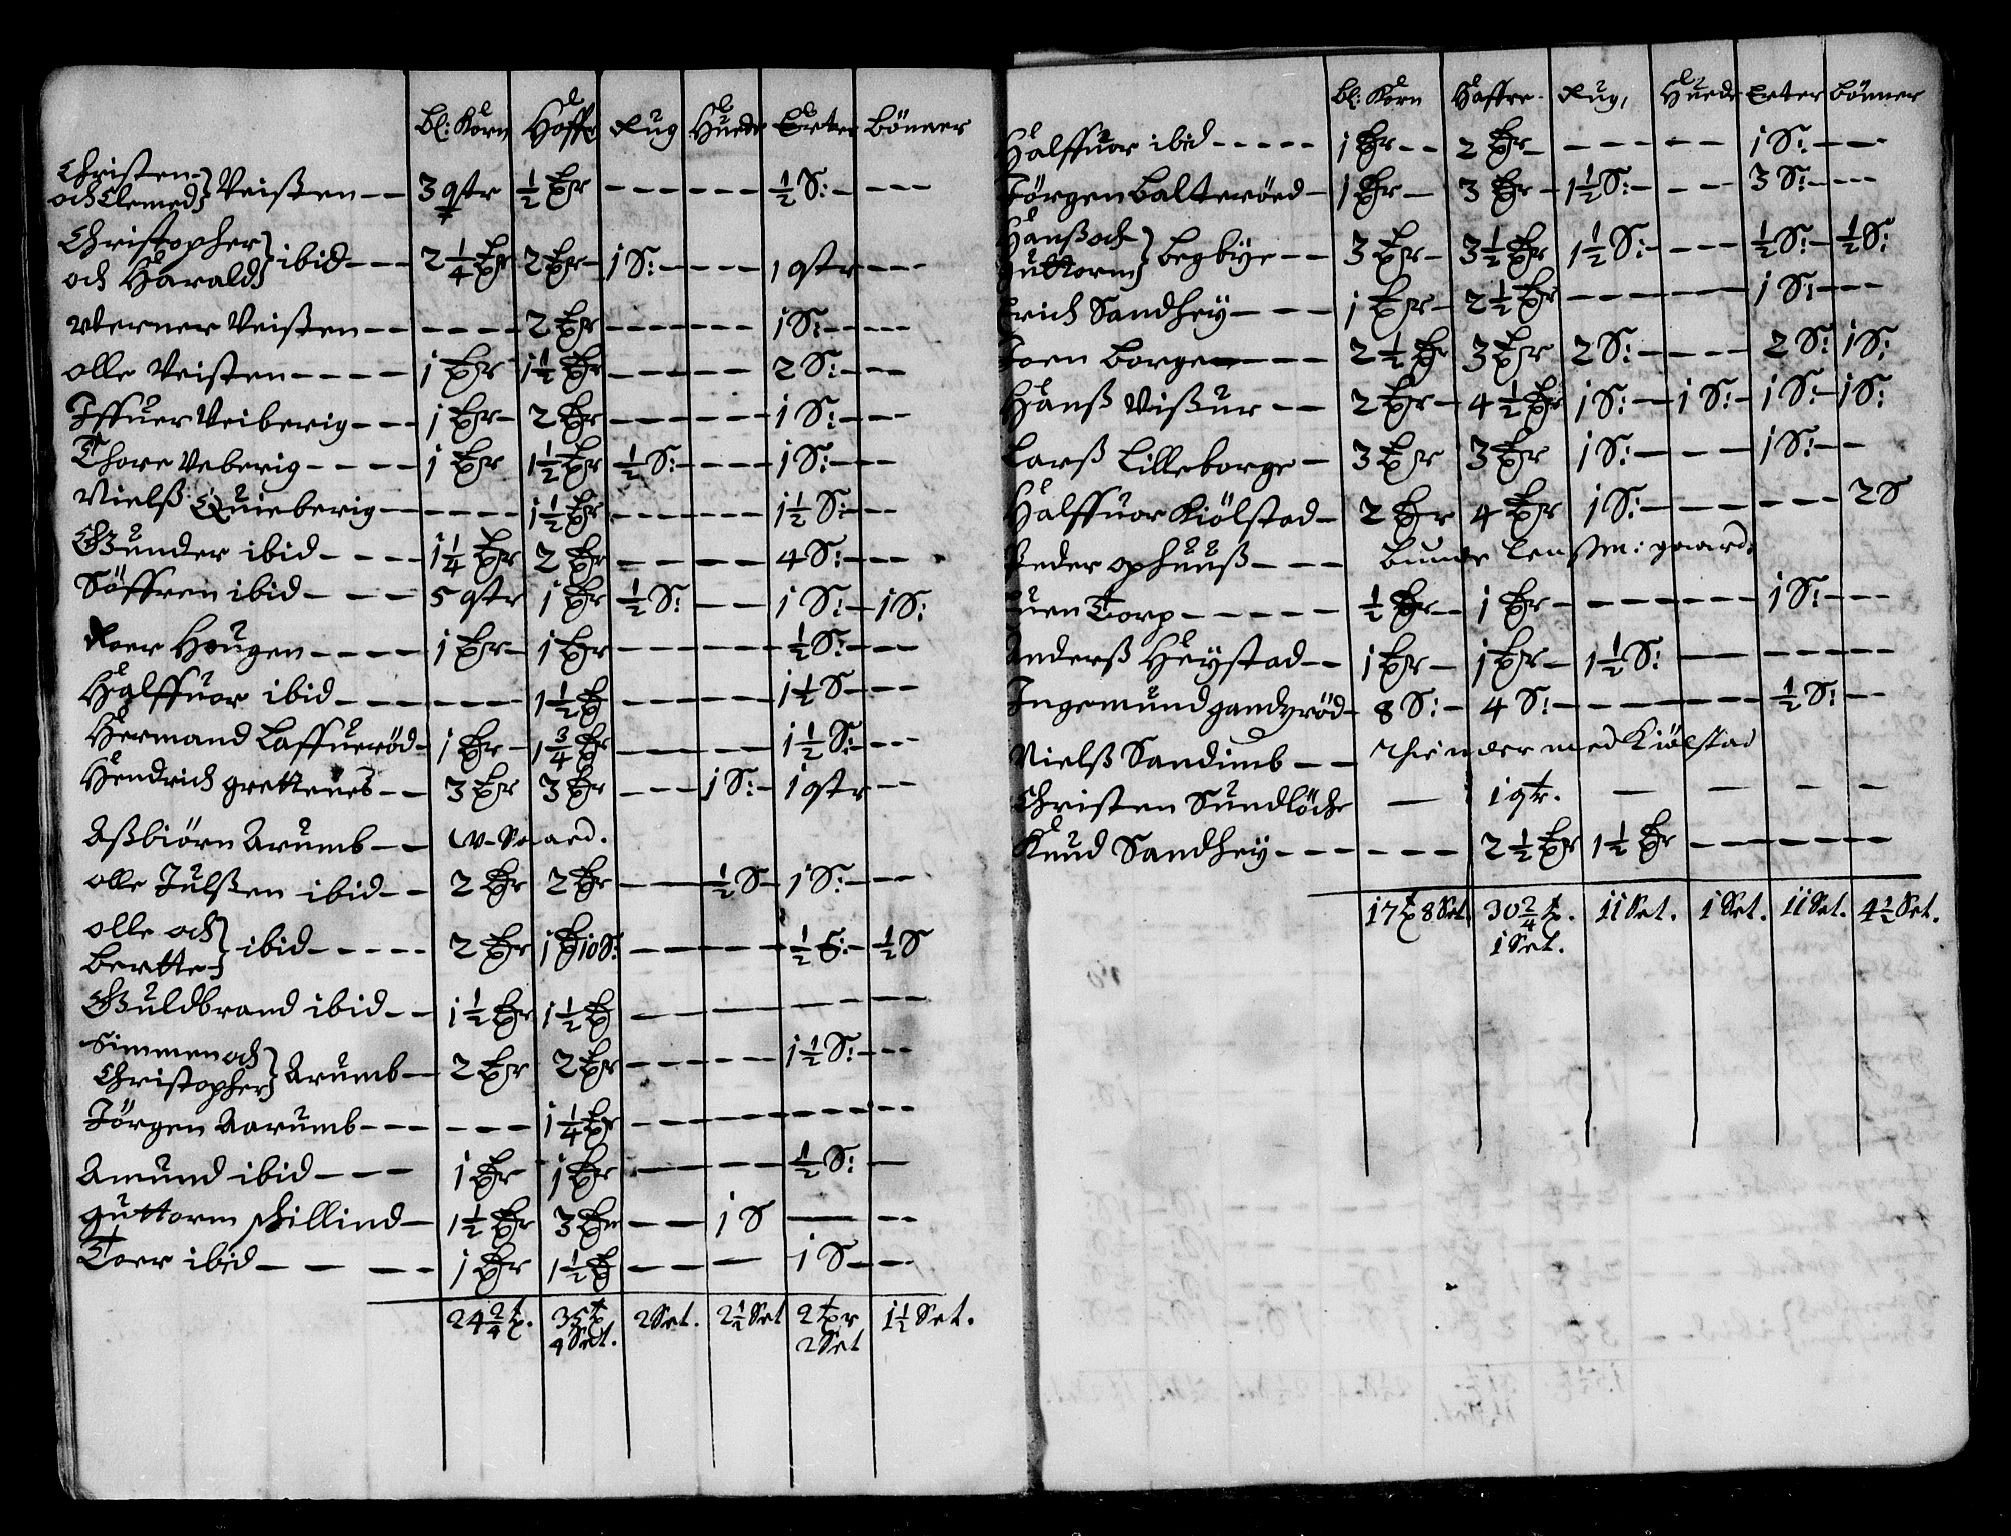 Bl: Korn Haffr Rug Huede Erter Bönner
Christen
och Clemed} Veisten -- 3 qtr ½ tr ------ ½ S: ---
Christopher
och Harald} ibid --- 2¼ tr 2 tr 1 S: --- 1 qtr ---
Werner Veisten -- ---- 2 tr ------ 1 S: ---
Olle Veisten ---- 1 tr 1½ tr ------ 2 S: ---
Iffuer Veiberig --- 1 tr 2 tr ------ 1 S: ---
Thore Veberig ---- 1 tr 1½ tr ½ S: --- 1 S: ---
Nielß Quieberig -- ---- 1½ tr ------ 1½ S: ---
Gunder ibid ---- 1¼ tr 2 tr ------ 4 S: ---
Söffren ibid --- 5 qtr 1 tr ½ S: --- 1 S: 1 S:
Roer Hougen ---- 1 tr 1 tr ------ ½ S: ---
Halffuor ibid ------ 1½ t ------ 1½ S ---
Hermand Laffueröd - 1 tr 1¾ tr ------ 1½ S: ---
Hendrich gretteneb -- 3 tr 3 tr --- 1 S: 1 qtr --
Aßbiörn Arumb --
Olle Julßen ibid -- 2 tr 2 tr --- ½ S 1 S: ---
Olle och
Bertte} ibid ----- 2 tr 1 t 10 S: ------ ½ S: ½ S
Guldbrand ibid -- 1½ tr 1½ t ------
Simmen och
Christopher} Arumb -- 2 tr 2 tr ------ 1½ S: ---
Jörgen Aarumb --- --- 1¼ tr ------
Amund ibid --- 1 tr 1 tr ------ ½ S: --
Guttorm skillind - 1½ tr 3 tr --- 1 S --- --
Toer ibid -- -- -- 1 tr 1½ t ------ 1 S ---
24 2/4 t. 35 t 2 Set. 2½ Set 2 tr 1½ Set.
4 Set. 2 Set
Bl: Korn Haffre Rug, Huede Erter Bönner
Halffuor ibid ----- 1 tr -- 2 tr ------ 1 S: ---
Jörgen Balteröed - 1 tr -- 3 tr 1½ S: --- 3 S: ---
Hanß och
Guttorm} Begbye -- 3 tr 3½ tr 1½ S: --- ½ S: ½ S:
Erich Sandhey --- 1 tr 2½ tr ------ 1 S: ---
Joen Borgen --- 2½ t 3 tr 2 S: --- 2 S: 1 S:
Hanß Vißur -- 2 tr 4½ tr 1 S: 1 S: 1 S: 1 S:
Larß Lilleborge - 3 tr 3 tr 1 S: --- 1 S: --
Halffuor Kiölstad - 2 tr 4 tr 1 S: ------ 2 S
Peder ophuuß --- Bunde Lenßm: gaard:
Juen Torp ----- ½ tr 1 tr ------ 1 S: ---
Anderß Heystad -- 1 tr 1 tr 1½ S: ------
Ingemund gandröd - 8 S: 4 S: ------ ½ S: --
Nielß Sandimb -- Thiender med Kiölstad
Christen Sundlöche -- 1 qtr. -- -- -- --
Knud Sandhey --- --- 2½ tr 1½ tr ------
17 t 8 Set. 30 2/4 t. 11 Set. 1 Set. 11 Set. 4½ Set.
1 Set.